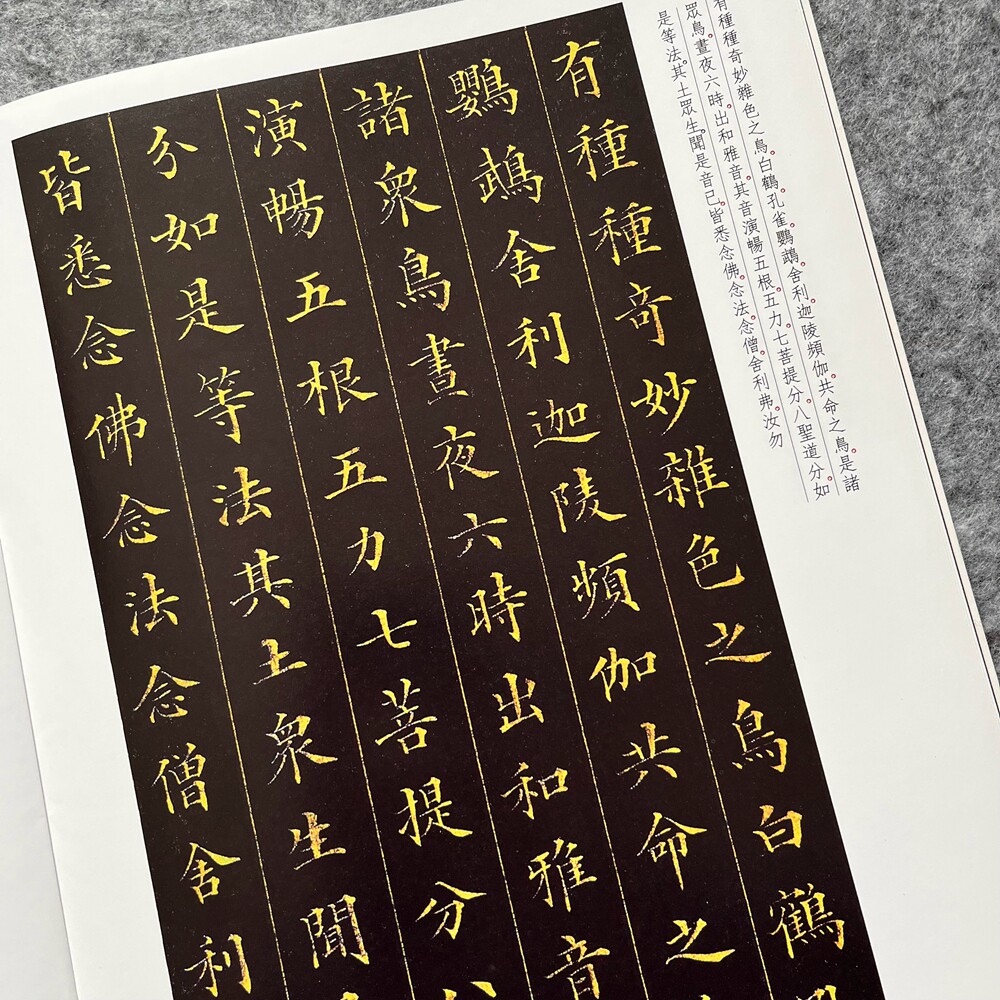 有種種奇妙雜色之鳥。白鶴。孔雀。鸚鵡。舍利。迦陵頻伽。共命之鳥。是諸
眾鳥。晝夜六時。出和雅音。其音演暢五根五力。七菩提分。八聖道分。如
是等法。其土眾生。聞是音已。皆悉念佛。念法。念僧。舍利弗。汝勿
有種種奇妙雜色之鳥白鶴
鸚鵡舍利迦陵頻伽共命之
諸衆鳥晝夜六時出和雅音
演暢五根五力七菩提分八
分如是等法其土衆生聞
皆悉念佛念法念僧舍利